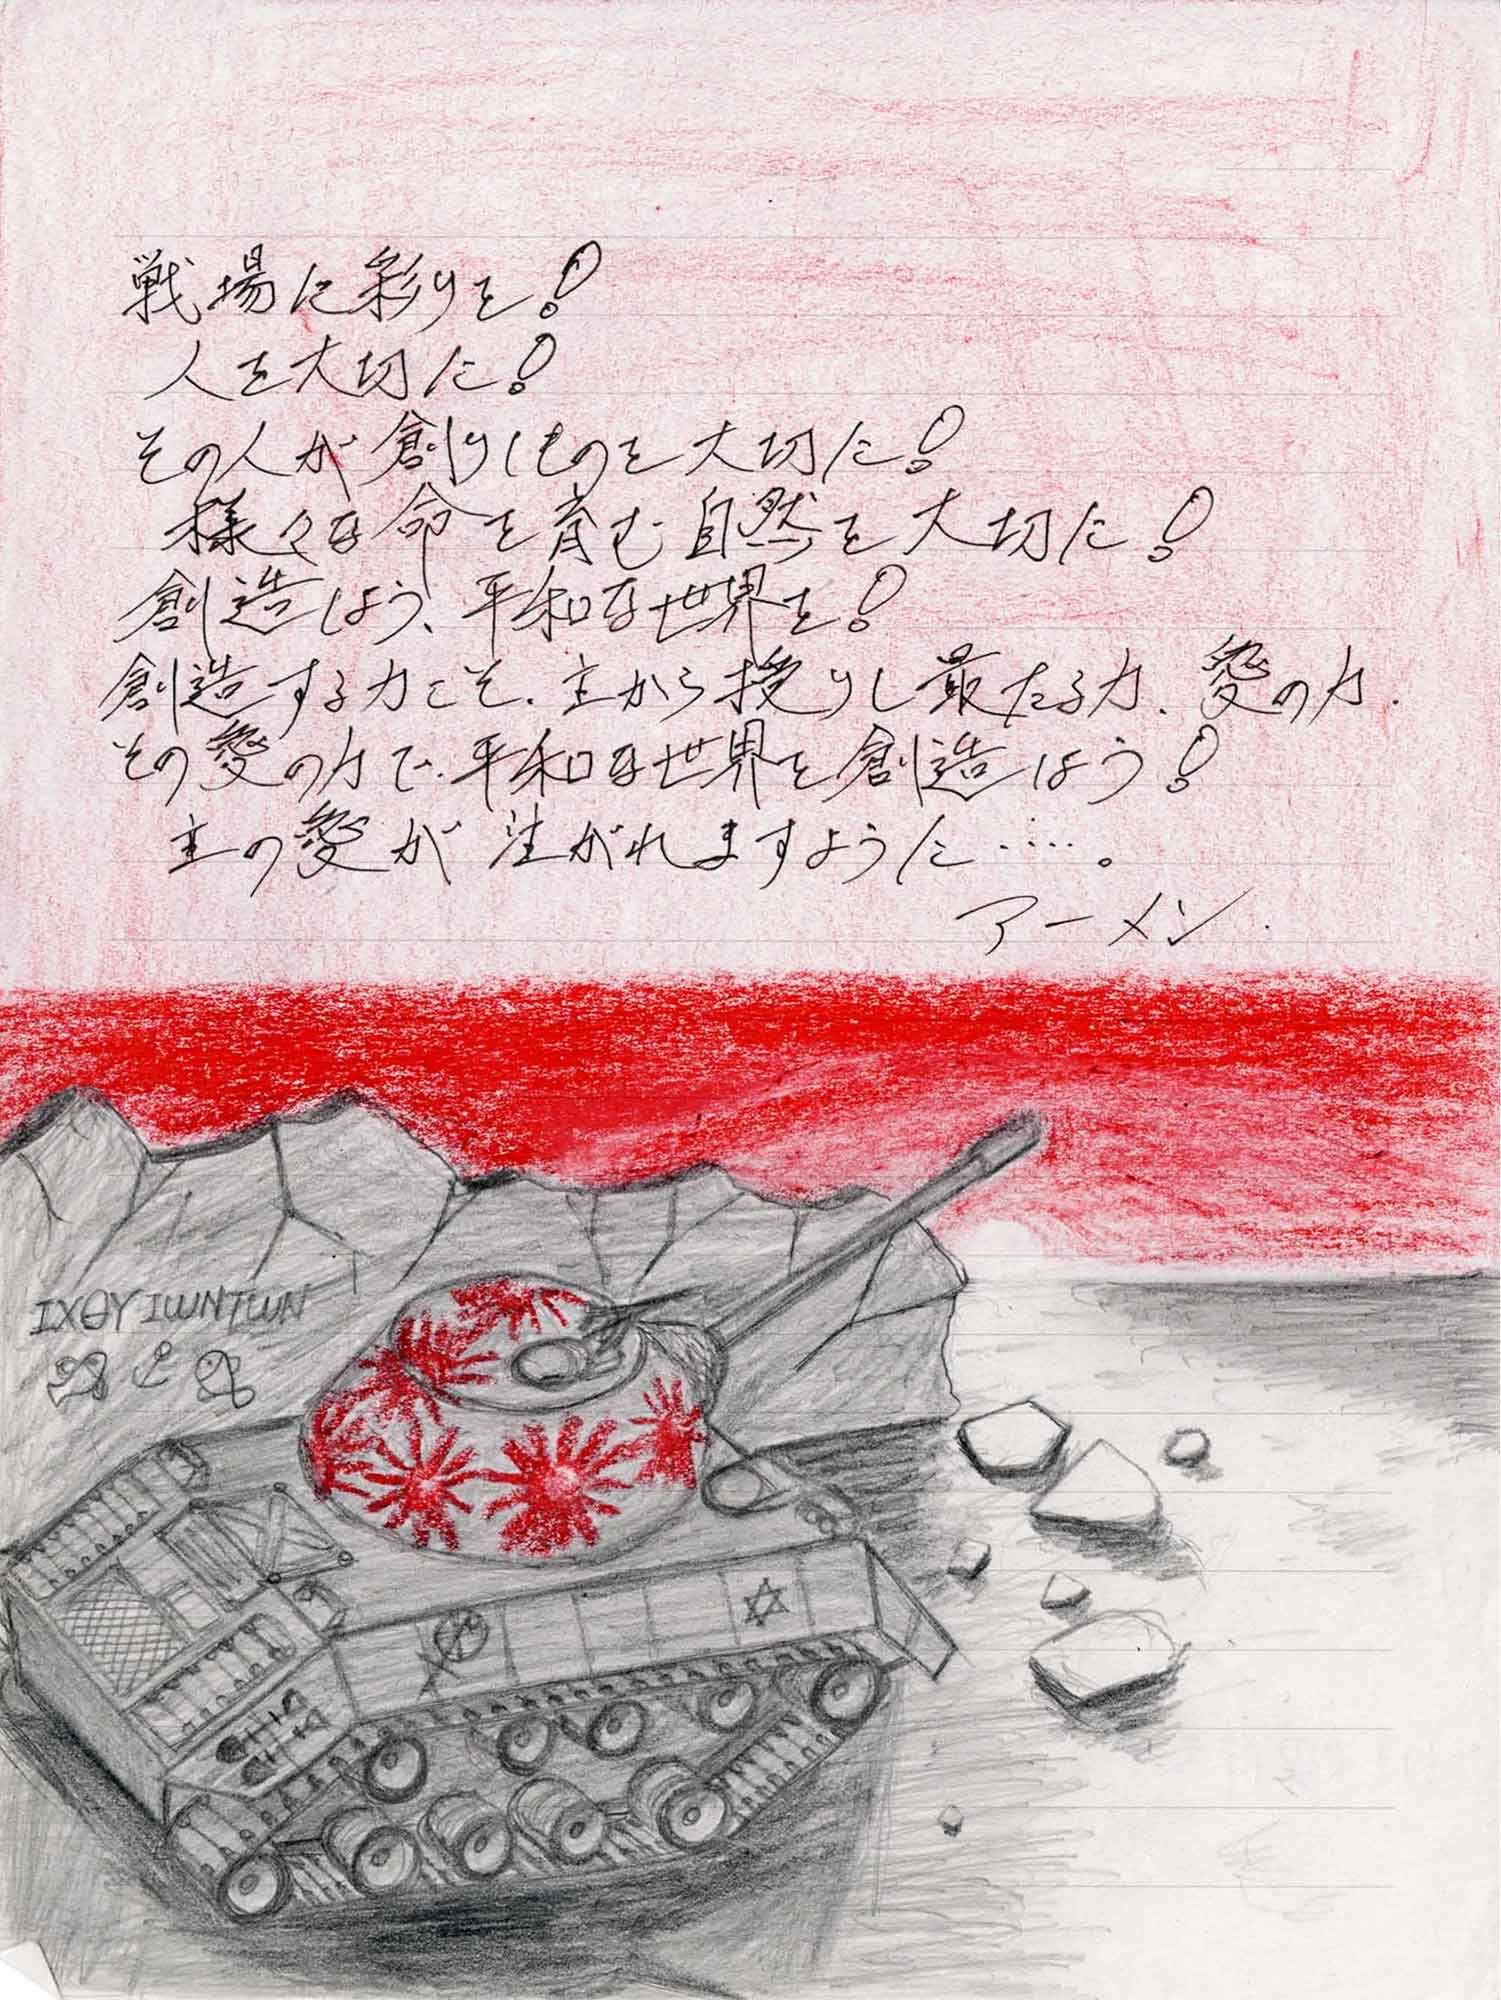 戦場に彩りを!
人を大切に!
その人が創りしものを大切に!
様々な命を育む自然を大切に!
創造しよう、平和な世界を!
創造する力こそ、主から授りし最たる力、愛の力.
その愛の力で、平和な世界を創造しよう!
主の愛が注がれますように……。
アーメン.
IXΘY IWNTWN